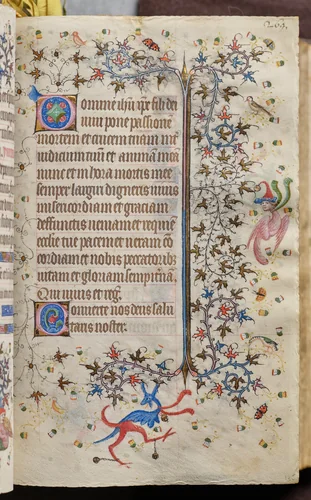 Domine ihu xpe fili dei
viui pone passione
mortem et crucem tuam int̄
iudicium tuū et animā meā
nunc et in hora mortis mee
semper largiri digneris viuis
misericordiam et graciam
defunctis veniam et requiē
ecclie tue pacem et veram cō
cordiam et nobis peccatorib
vitam et gloriam sempiternā
Qui viuis et reg̅
Conuerte nos deus salu
taris noster